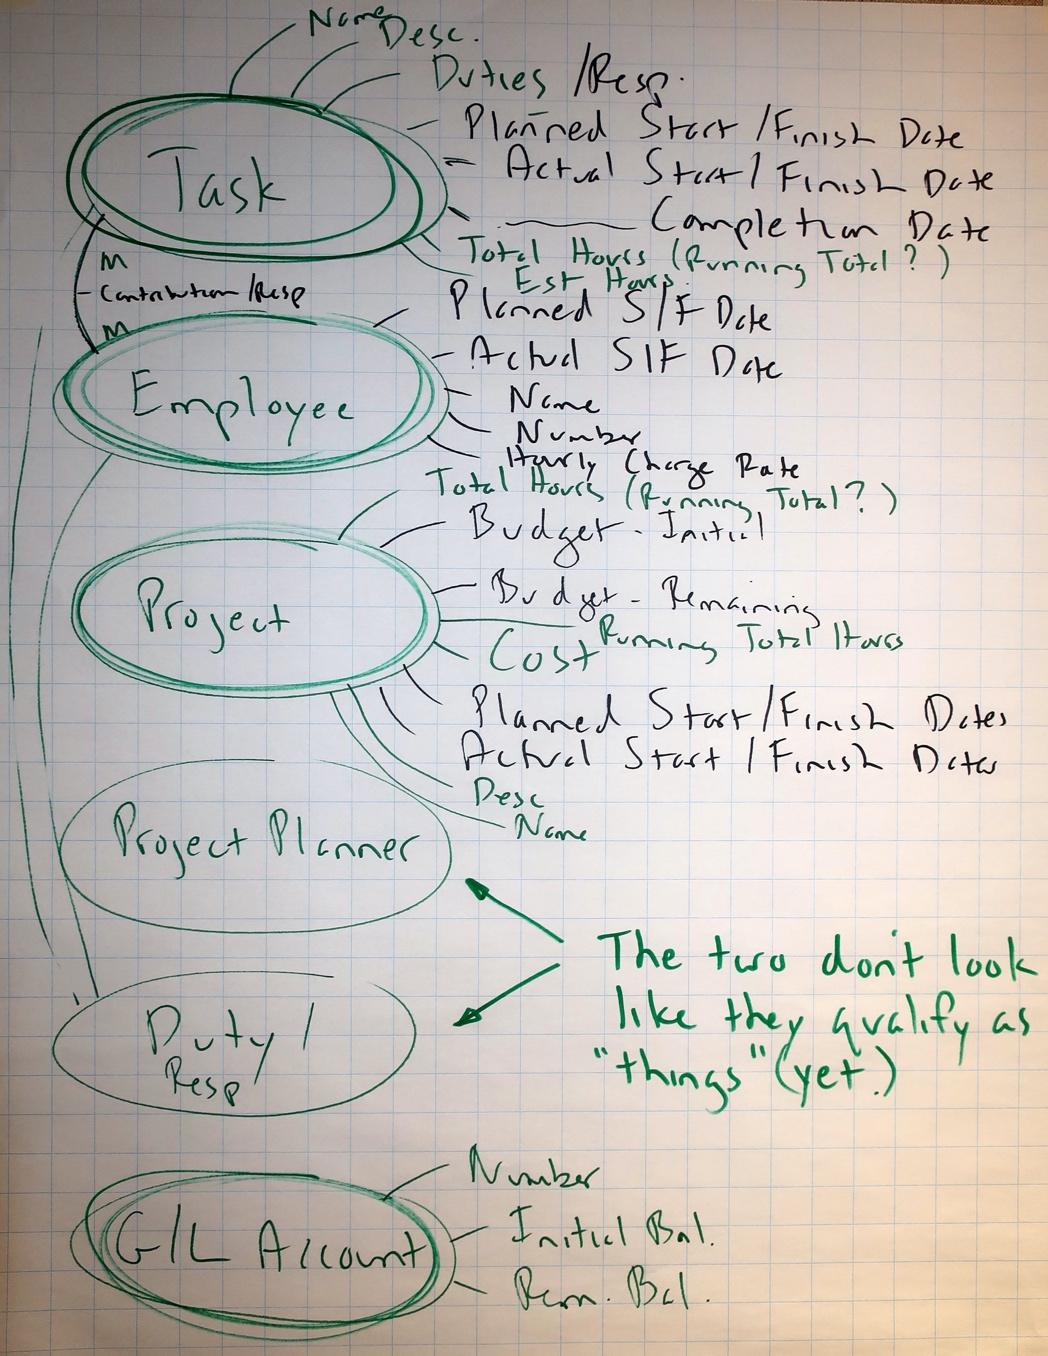 Name
Desc.
Duties /Resp.
Planned Start /Finish Date
Task
Actual Start / Finish Date
Completion Date
Total Hours (Running Total?)
M
Est Hours.
Contribution/Resp
Planned S/F Date
M
Actual S/F Date
Employee
Name
Number
Hourly Charge Rate
Total Hours (Running Total?)
Budget - Initial
Budget - Remaining
Project
Running Total Hours
Cost
Planned Start/Finish Dates
Actual Start / Finish Dates
Desc
Name
Project Planner
The two don't look
like they qualify as
"things" (yet.)
Duty /
Resp
Number
G/L Account
Initial Bal.
Rem. Bal.